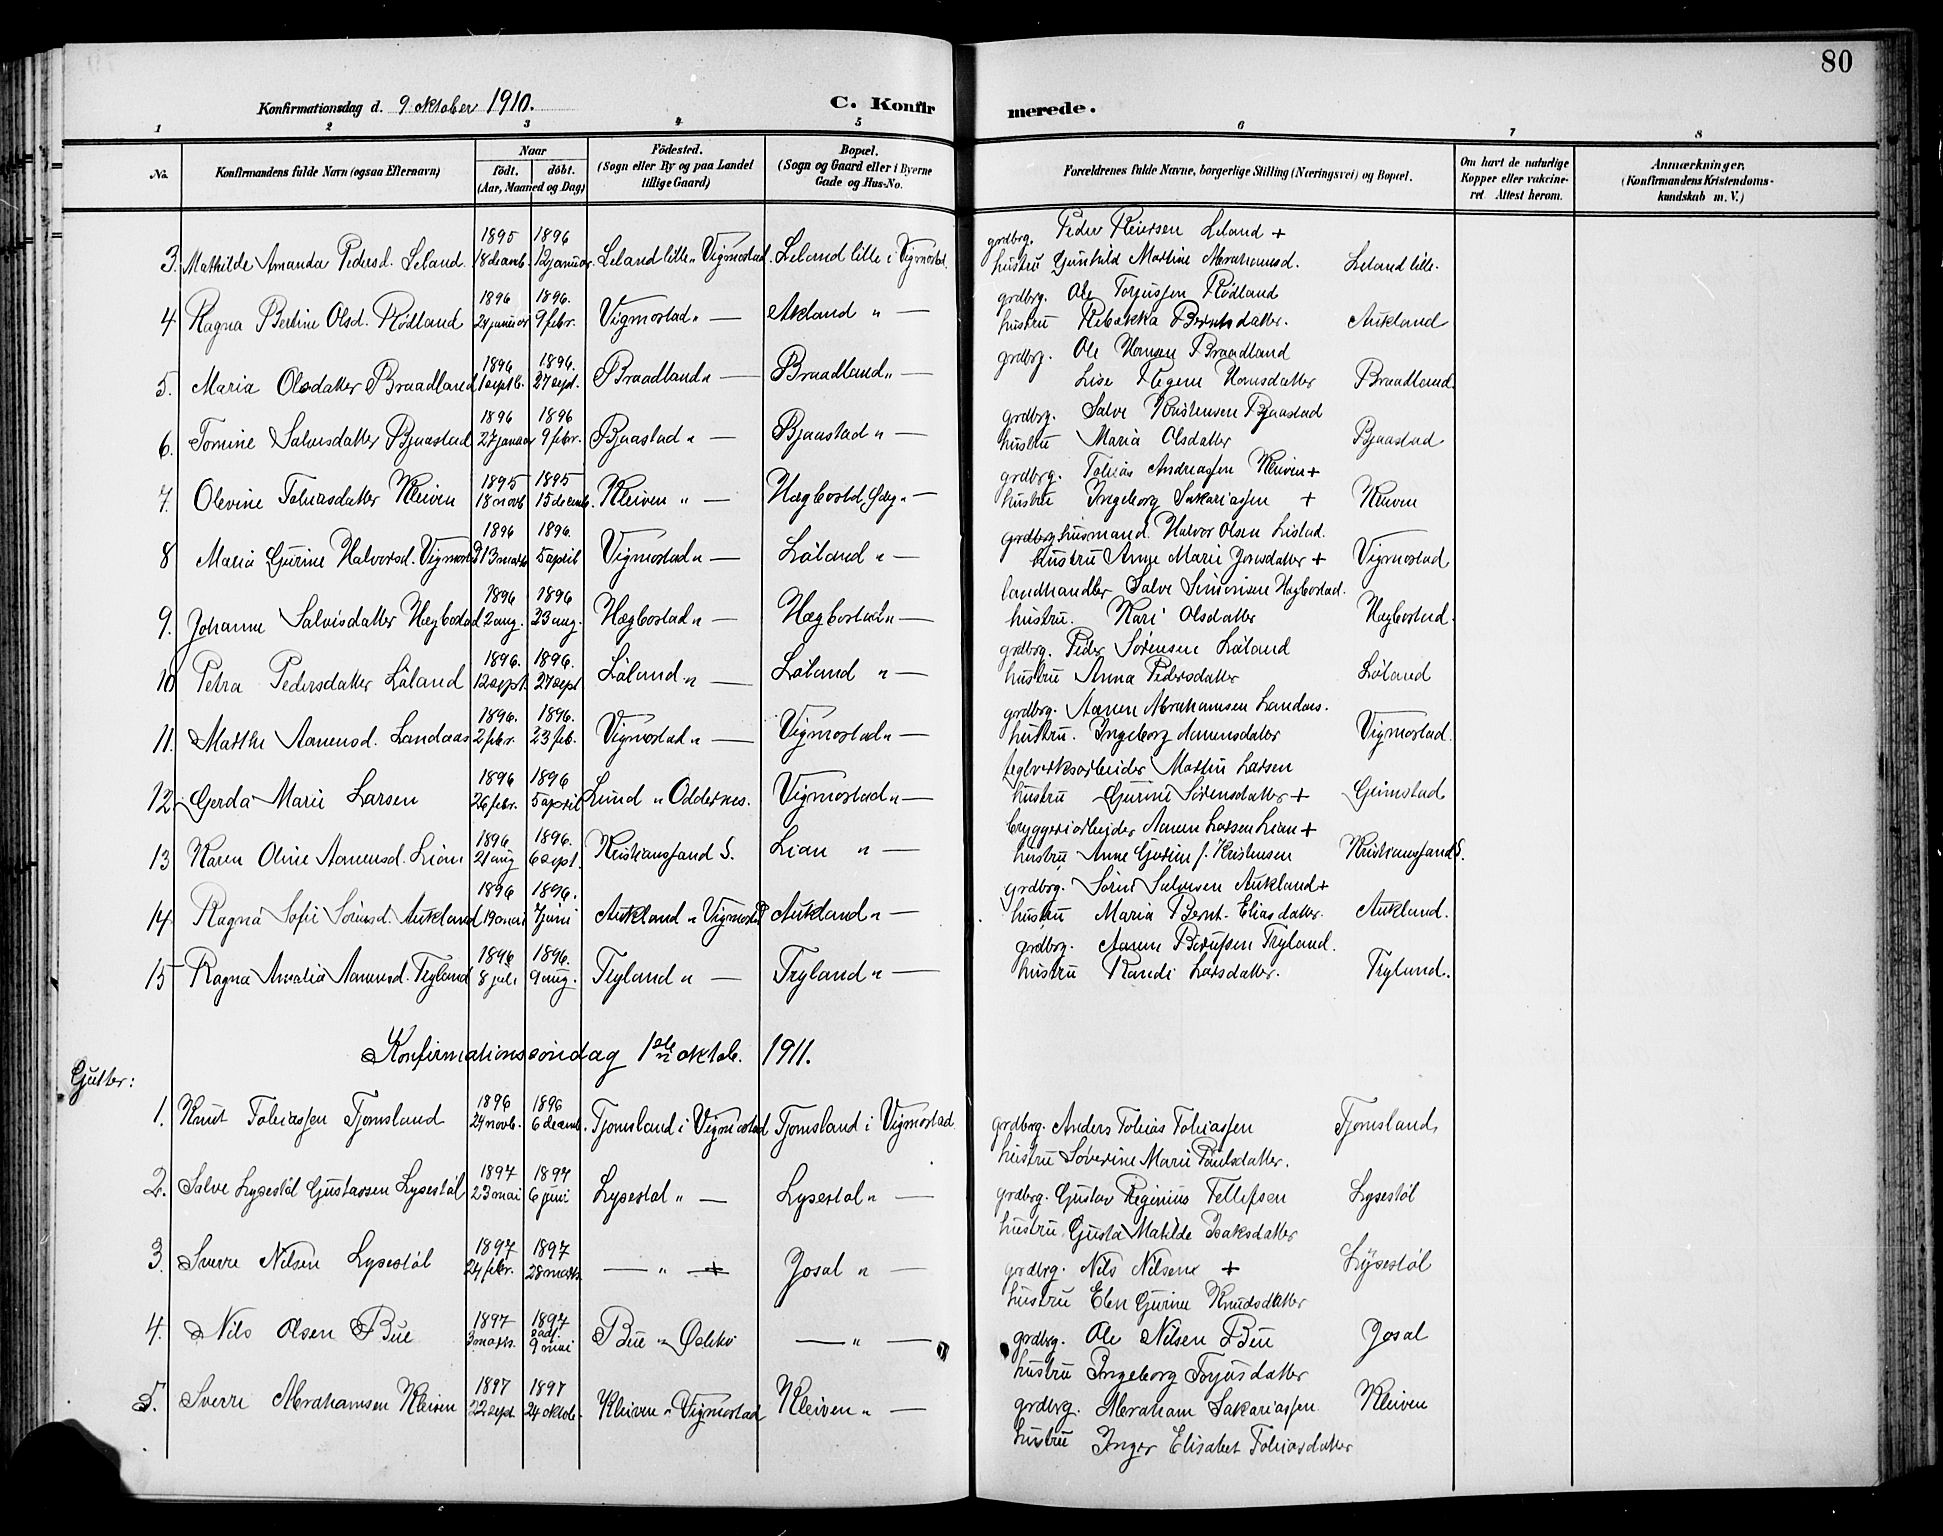 80
Konfirmationsdag d. 9 oktober 1910.
C. Konfirmerede.
1 2 3 4 5 6 7 8
No.
Konfirmandens fulde Navn (ogsaa Efternavn)
Naar
födt. döbt.
(Aar, Maaned og Dag)
Födested.
(Sogn eller By og paa Landet
tillige Gaard)
Bopæl.
(Sogn og Gaard eller i Byerne
Gade og Hus-No.
Forældrenes fulde Navne, borgerlige Stilling (Næringsvei) og Bopæl.
Om havt de naturlige
Kopper eller vakcine-
ret Attest herom.
Anmærkninger,
(Konfirmandens Kristendoms-
kundskab m. V.)
1895 1896 grdbrg. Peder Leland +
3. Mathilde Amanda Pedersd. Leland 18 decemb. 12 januar. Leland lille " Vigmostad. Leland lille i Vigmostad. hustru Gunhild Martine Abrahamsd. Leland lille.
1896 1896. grdbrg. Ole Torjussen Rödland
4 Ragna Bertine Olsd. Rödland 24 januar 9 febr. Vigmostad " — Aukland " — hustru Rebekka Berntsdatter. Aukland
1896 1896. grdbrg. Ole Hansen Braadland
5. Maria Olsdatter Braadland 1 septb. 27 sept. Braadland " — Braadland " — Lise Regine Hansdatter Braadland.
1896 1896 grdbrg. Salve Kristensen Bjaastad
6. Tomine Salvesdatter Bjaastad 27 januar 9 febr. Bjaastad " — Bjaastad " — hustru Maria Olsdatter Bjaastad
1895 1895 grdbrg. Tobias Andreassen Kleiven +
7. Olevine Tobiasdatter Kleiven 18 novb 15 decemb. Kleiven " — Hægbostd, " — hustru Ingeborg Sakariassen + Kleiven
1896 1896. grdbrg husmand. Halvor Olsen Listad.
8 Maria Gurine Halvorsd. Vigmostad 13 marts 5 april Vigmostad " — Löland " — hustru Anne Marie Jonsdatter + Vigmostad
1896 1896 landhandler Salve Simonsen Hægbostad.
9. Johanne Salvesdatter Hægbostad 2 aug. 23 aug. Hægbostad " — Hægbostad " — hustru. Kari Olsdatter Hægbostad.
1896. 1896. grdbrg. Peder Sörensen Löland
10 Petra Pedersdatter Löland 12 sept. 27 sept Löland " — Löland " — hustru Anna Pedersdatter Löland
1896. 1896. grdbrg. Aanen Abrahamsen Landaas.
11. Marthe Aanensd. Landaas 2 febr. 23 feb. Vigmostad " — Vigmostad " — hustru. Ingeborg Aanensdatter Vigmostad.
1896 1896 teglverksarbeider Martin Larsen
12 Gerda Marie Larsen 26 febr. 5 april Lund " Oddernes. Vigmostad " — hustru Gurine Sörensdatter + Grimstad
1896 1896. bryggeriarbeider Aanen Larsen Lian +
13 Karen Oline Aanensd. Lian 21 aug 6 sept. Kristianssand S. Lian " — hustru Anne Gurine f. Kristensen Kristianssand S.
1896 1896. grdbrg. Sören Salvesen Aukland +
14. Ragna Sofie Sörensd. Aukland 19 mai 7 juni Aukland " Vigmostad Aukland " — hustru Maria Bernt-Eliasdatter. Aukland.
1896 1896. grdbrg. Aanen Tryland.
15 Ragna Amalia Aanensd. Tryland 8 juli 9 aug. Tryland " — Tryland " — hustru Randi Larsdatter. Tryland.
Konfirmationssöndag 1ste oktob. 1911.
Gutter:
1896 1896
1. Knut Tobiassen Tjomsland 24 novb. 6 decemb. Tjomsland i Vigmostad Tjomsland i Vigmostad grdbrg. Anders Tobias Tobiassen Tjomsland,
hustru Severine Marie Paulsdatter.
1897 1897
2. Salve Lysestöl Gustavsen Lysestöl 23 mai 6 juni Lysestöl " — Lysestöl " — grdbrg. Gustav Reginius Tellefsen Lysestöl
hustru Gusta Matilde Isaksdatter
1897 1897
3. Sverre Nilsen Lysestöl 24 febr. 28 marts — " — Josal " — grdbrg. Nils Nilsen + Lysestöl
hustru Elen Gurine Knudsdatter
1897 1897
4. Nils Olsen Bue 3 marts. 9 mai Bue " — " — grdbrg. Ole Nilsen Bue Josal
hustru Ingeborg Torjusdatter
1897 1897
5. Sverre Abrahamsen Kleiven 22 sept. 24 oktob. Kleiven " Vigmostad Kleiven " — grdbrg. Abraham Sakariassen Kleiven
hustru Inger Elisabet Tobiasdatter